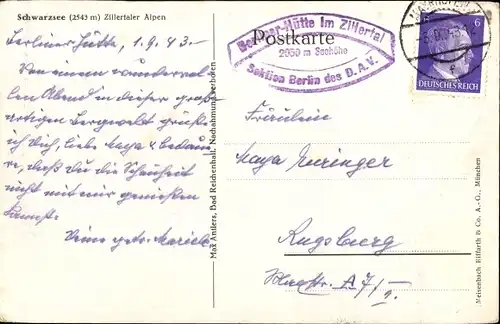 Schwarzsee (2543 m) Zillertaler Alpen
Berliner Hütte, 1.9.43.-
Von einem wundervol-
len Abend in dieser groß-
artigen Bergwelt grüße
ich dich, liebe Maya & bedau-
re, daß du die Schönheit
nicht mit mir genießen
kannst.
Deine
Max Anders, Bad Reichenhall, Nachahmung verboten
Postkarte
Berliner-Hütte im Zillertal
2050 m Seehöhe
Sektion Berlin des D.A.V.
6
DEUTSCHES REICH
Fräulein
Maya
Augsburg
A 7/
Meisenbach Riffarth & Co. A.-G., München